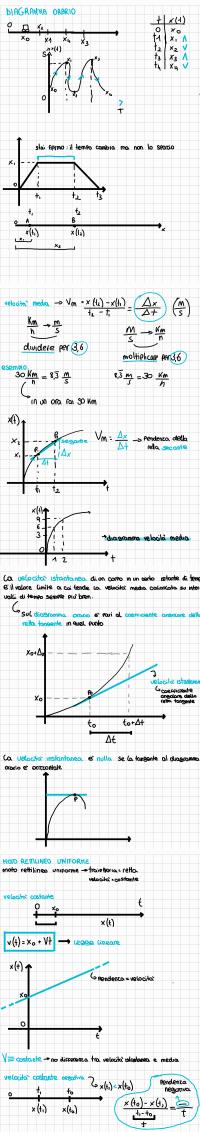 DIAGRAMMA ORARIO
t x(t)
0 x₀
t₁ x₁
t₂ x₂
t₃ x₃
t₄ x₄
0 x₀ x₁ x₂ x₃
stai fermo: il tempo cambia ma non lo spazio
x₁
t₁ t₂ t₃
A B
x(t₁) x(t₂)
velocità media → Vm = x(t₂) - x(t₁) / t₂ - t₁ = Δx / Δt (m/s)
km/h → m/s
dividere per 3,6
m/s → km/h
moltiplicare per 3,6
esempio
30 km/h = 8,3 m/s
8,3 m/s = 30 km/h
in un ora fai 30 km
x(t)
secante
Vm = Δx / Δt → pendenza della
retta secante
t₁ t₂ t
x(t)
9
6
3
1 2 t
→ diagramma velocità media
La velocità istantanea di un corpo in un certo istante di tempo
è il valore limite a cui tende la velocità media calcolata su inter
valli di tempo sempre più brevi.
Sul diagramma orario è pari al coefficiente angolare della
retta tangente in quel punto
x₀+Δx
velocità istantanea
coefficiente
angolare della
retta tangente
x₀
A
t₀ t₀+Δt t
Δt
La velocità instantanea è nulla se la tangente al diagramma
orario è orizzontale
P
MOTO RETTILINEO UNIFORME
moto rettilineo uniforme → traiettoria = retta
velocità = costante
velocità costante
0 x₀ t
x(t)
v(t) = x₀ + Vt → legge lineare
x(t)
pendenza = velocità
x₀
t
V = costante → no differenza tra velocità istantanea e media
velocità costante negativa
x(t₁) < x(t₀)
pendenza
negativa
0 t₁ t₀ t
x(t₁) x(t₀)